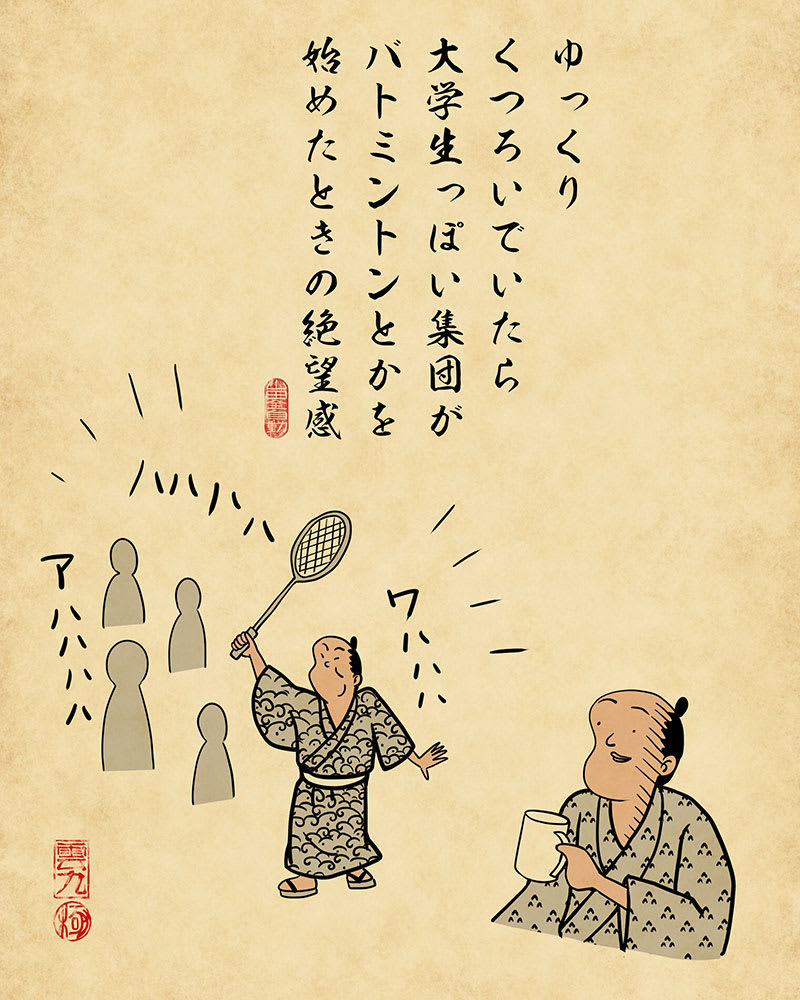 ゆっくり
くつろいでいたら
大学生っぽい集団が
バトミントンとかを
始めたときの絶望感
ハハハハ
ワハハハ
アハハハハ